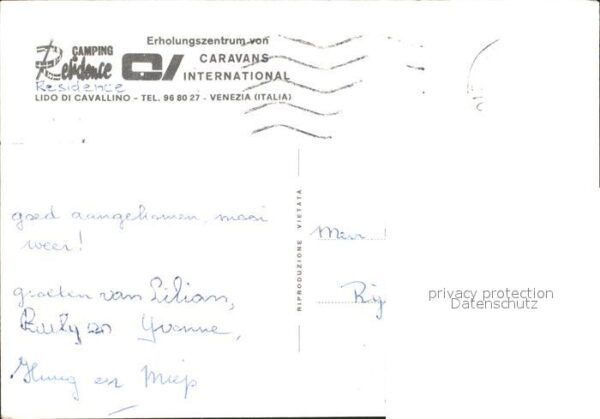 Erholungszentrum von
CAMPING
Residence
CI
CARAVANS
INTERNATIONAL
Residence
LIDO DI CAVALLINO - TEL. 96 80 27 - VENEZIA (ITALIA)
goed aangekomen, mooi
weer!
groeten van Lilian,
en Yvonne,
en Miep
RIPRODUZIONE VIETATA
privacy protection
Datenschutz